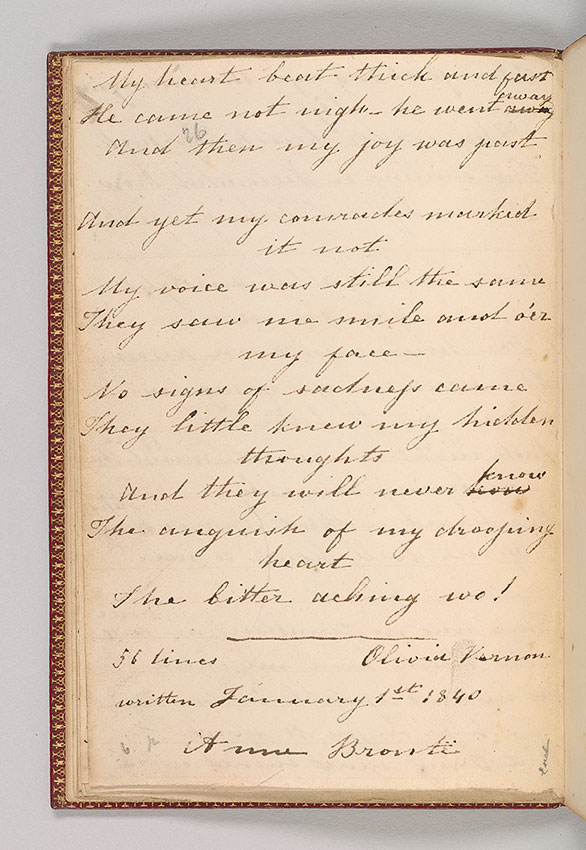 My heart beat thick and fast
away
He came not nigh – he went away
26
And then my joy was past
And yet my comrades markid
it not
My voice was still the same
They saw me smile and o'er
my face –
No signs of sadness came
They little knew my hidden
thoughts
And they will never know
The anguish of my drooping
heart
The bitter aching wo!
56 lines Olivia Vernon
written January 1st 1840
Anne Brontë